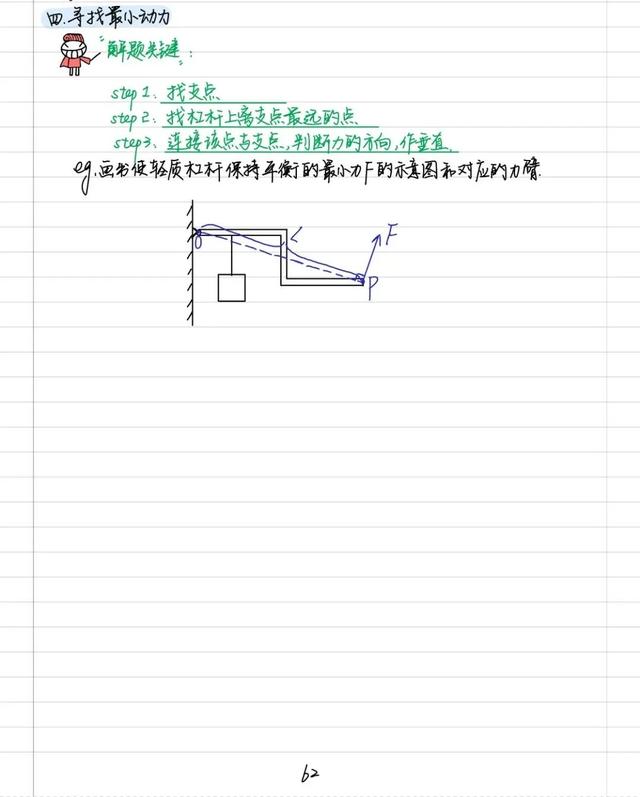 四.寻找最小动力
"解题关键":
step 1: 找支点
step 2: 找杠杆上离支点最远的点
step3: 连接该点与支点,判断力的方向,作垂直.
eg.画出使轻质杠杆保持平衡的最小力F的示意图和对应的力臂.
O
L
F
P
62